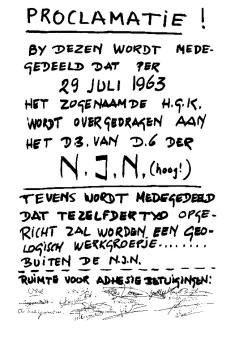 PROCLAMATIE !
BY DEZEN WORDT MEDE-
GEDEELD DAT PER
29 JULI 1963
HET ZOGENAAMDE H.G.K.
WORDT OVERGEDRAGEN AAN
HET D3. VAN D.6 DER
N.J.N. (hoog!)
TEVENS WORDT MEDEGEDEELD
DAT TEZELFDERTYD OPGE-
RICHT ZAL WORDEN EEN GEO-
LOGISCH WERKGROEPJE........
BUITEN DE N.J.N.
RUIMTE VOOR ADHESIE BETUIGINGEN: